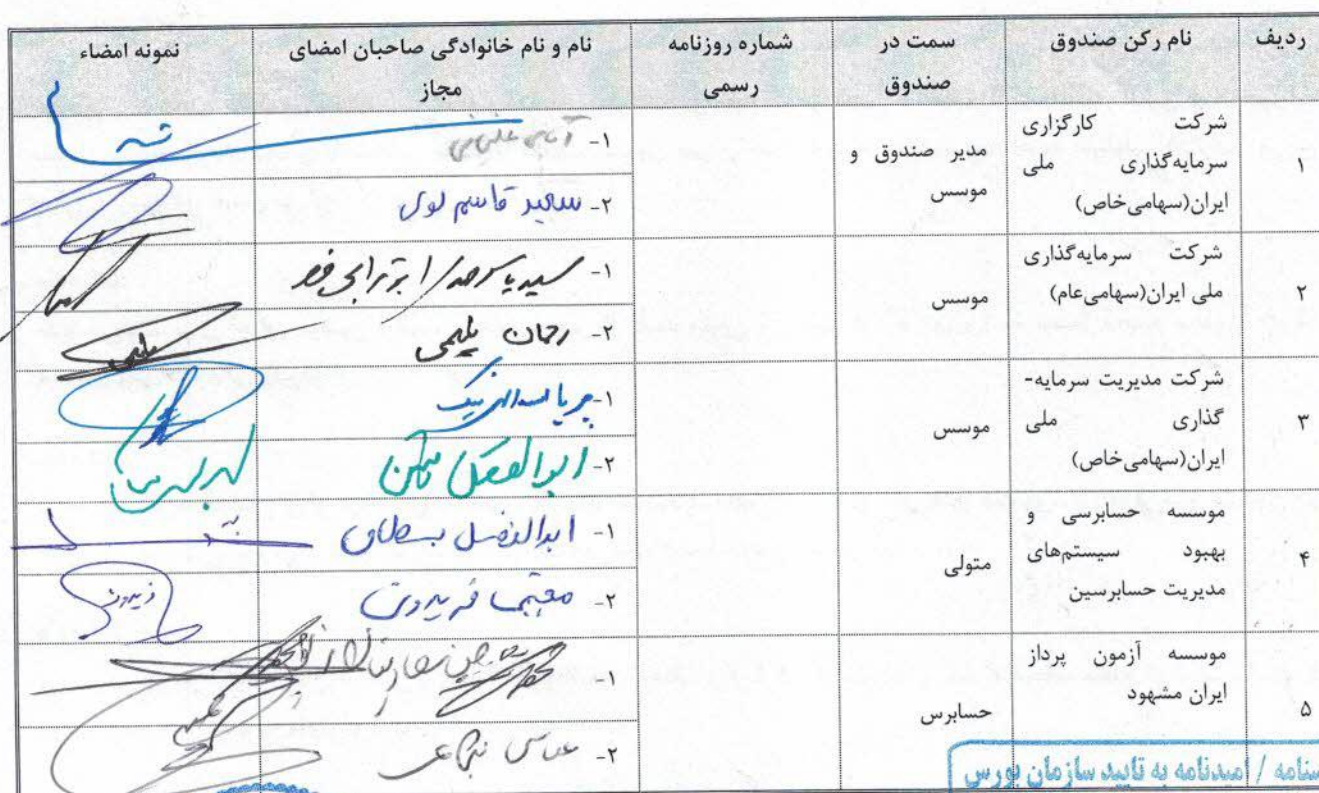 ردیف
نام رکن صندوق
سمت در صندوق
شماره روزنامه رسمی
نام و نام خانوادگی صاحبان امضای مجاز
نمونه امضاء
۱
شرکت کارگزاری
سرمایه‌گذاری ملی
ایران(سهامی‌خاص)
مدیر صندوق و
موسس
۱-
۲- سعید قاسم لوی
۲
شرکت سرمایه‌گذاری
ملی ایران(سهامی‌عام)
موسس
۱-
۲- رحمان یلمی
۳
شرکت مدیریت سرمایه-
گذاری ملی
ایران(سهامی‌خاص)
موسس
۱-
۲- ابوالفضل
۴
موسسه حسابرسی و
بهبود سیستم‌های
مدیریت حسابرسین
متولی
۱- ابوالفضل بسطامی
۲- مجتبی فریدونی
۵
موسسه آزمون پرداز
ایران مشهود
حسابرس
۱-
۲- عباس
امیدنامه به تایید سازمان بورس